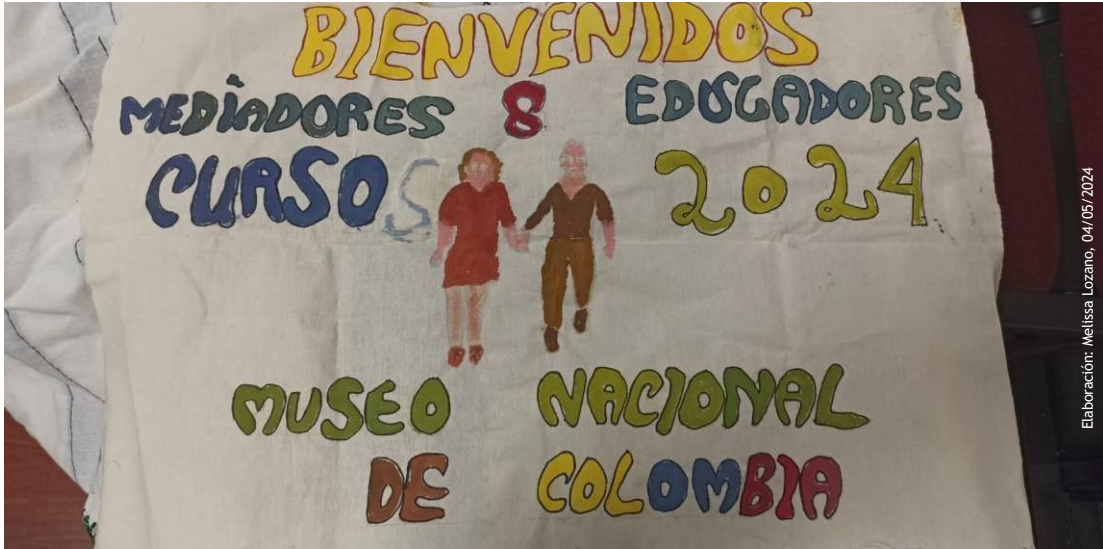 BIENVENIDOS
MEDIADORES 8 EDUSCADORES
CURSOS 2024
MUSEO NACIONAL
DE COLOMBIA
Elaboración: Melissa Lozano, 04/05/2024